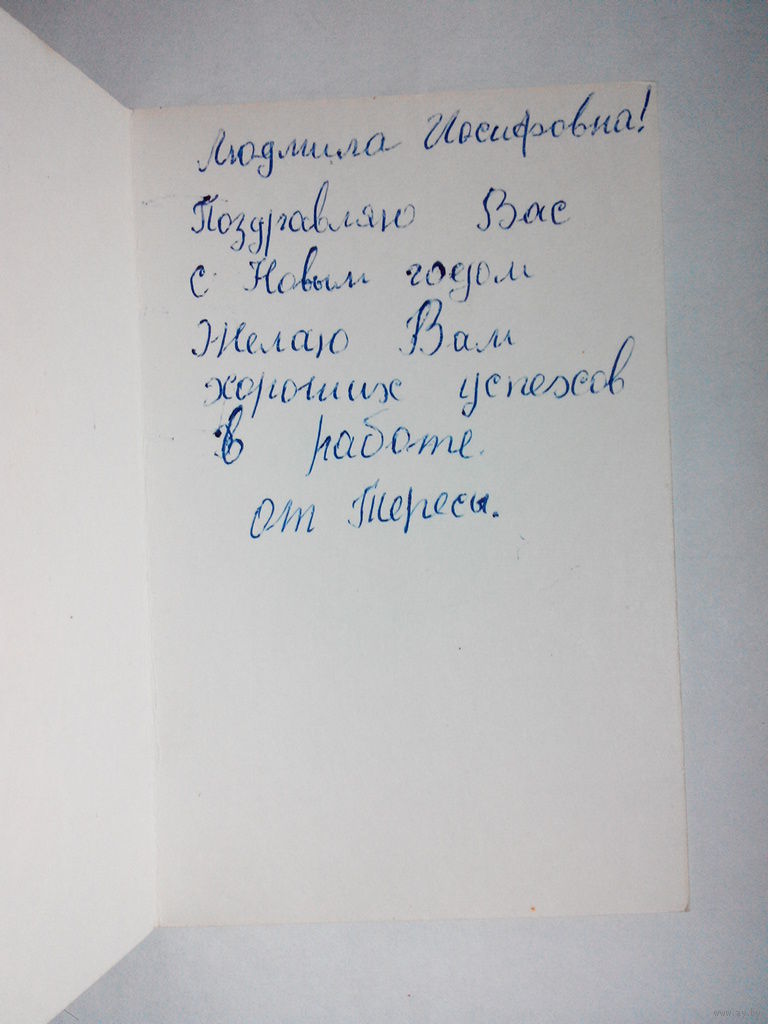 Людмила Иосифовна!
Поздравляю Вас
с Новым годом
Желаю Вам
хороших успехов
в работе.
от Тересы.
www.ay.by